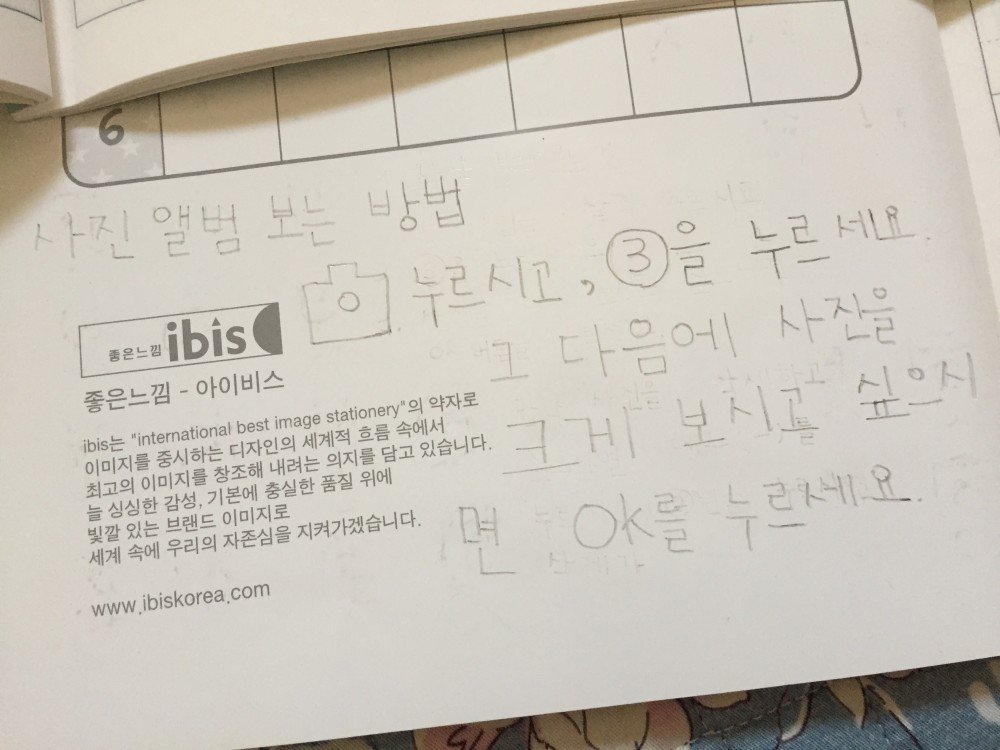 6
사진 앨범 보는 방법
누르시고, ③을 누르세요.
그 다음에 사진을
크게 보시고 싶으시
면 OK를 누르세요.
좋은느낌 ibis
좋은느낌 - 아이비스
ibis는 "international best image stationery"의 약자로
이미지를 중시하는 디자인의 세계적 흐름 속에서
최고의 이미지를 창조해 내려는 의지를 담고 있습니다.
늘 싱싱한 감성, 기본에 충실한 품질 위에
빛깔 있는 브랜드 이미지로
세계 속에 우리의 자존심을 지켜가겠습니다.
www.ibiskorea.com